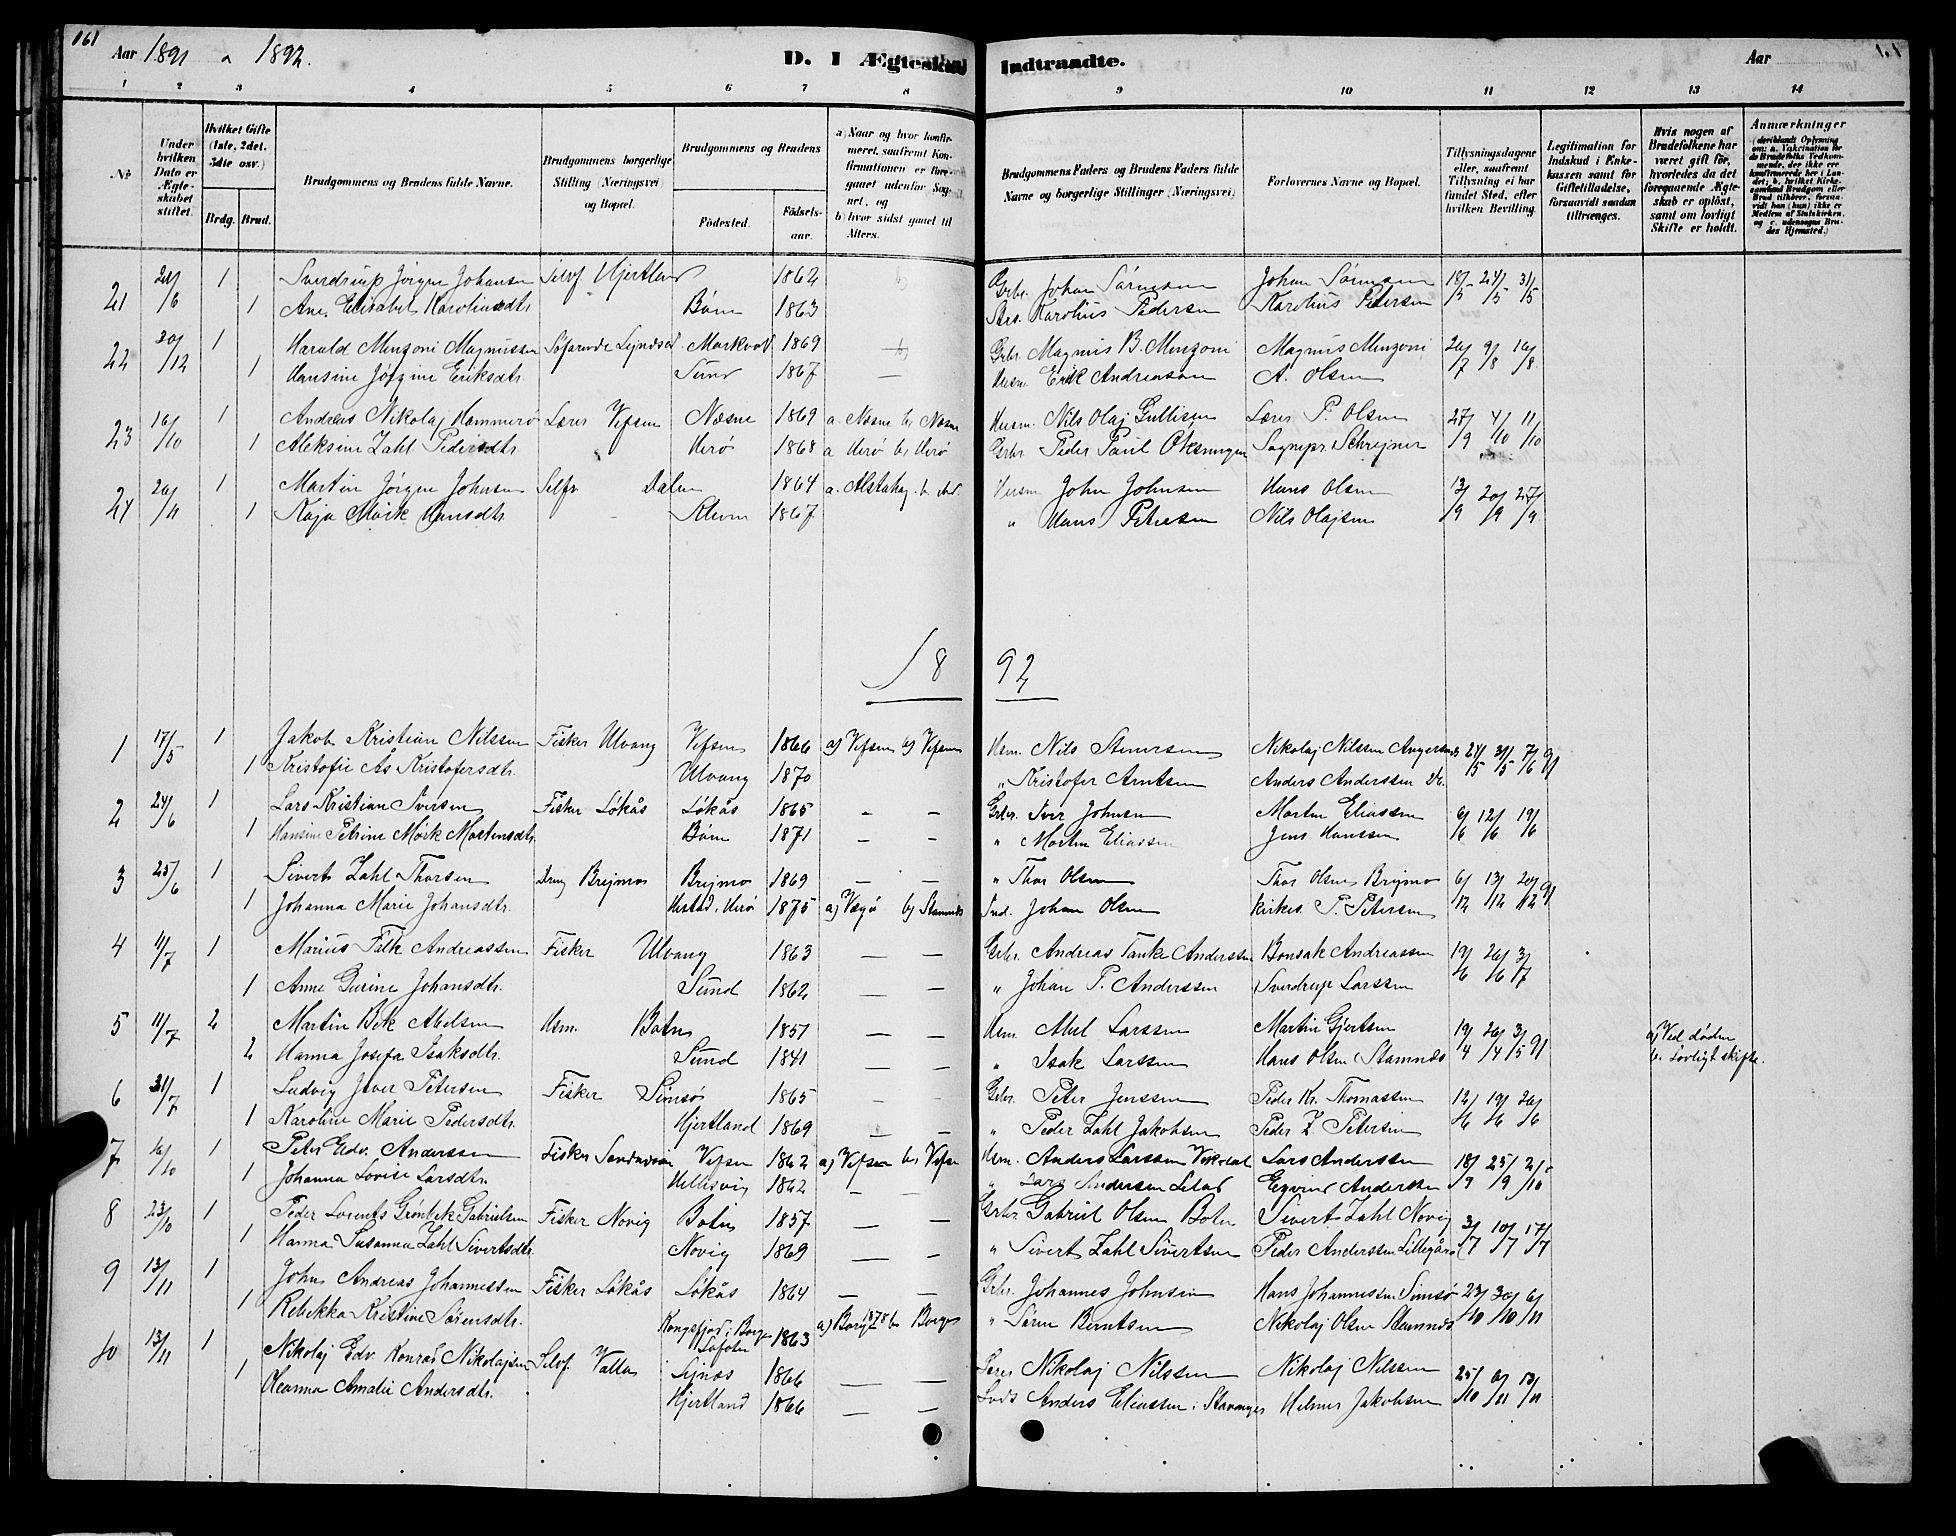 161
Aar 1891 1892.
D. I Ægteskab Indtraadte.
Aar
1 2 3 4 5 6 7 8 9 10 11 12 13 14
No
Under hvilken Dato er Ægteskabet stiftet.
Hvilket Gifte (1ste, 2det, 3die osv.)
Brdg. Brud.
Brudgommens og Brudens fulde Navne.
Brudgommens borgerlige Stilling (Næringsvei) og Bopæl.
Brudgommens og Brudens
Fødested. Fødselsaar.
a) Naar og hvor konfirmeret, saafremt Konfirmationen er foregaaet udenfor Sognet, og
b) hvor sidst gaaet til Alters.
Brudgommens Faders og Brudens Faders fulde Navne og borgerlige Stillinger (Næringsvei)
Forlovernes Navne og Bopæl.
Tillysningsdagene eller, saafremt Tillysning ei har fundet Sted, efter hvilken Bevilling.
Legitimation for Indskud i Enkekassen samt for Giftetilladelse, forsaavidt saadan tiltrænges.
Hvis nogen af Brudefolkene har været gift før, hvorledes da det foregaaende Ægteskab er opløst, samt om lovligt Skifte er holdt.
Anmærkninger
21 1 Sverdrup Jørgen Johansen Selvf Hjertland 1862 Grbr. Johan Sørensen Johan Sørensen 18/5 24/5 31/5
1 Ane Elisabet Karolinsdtr. Bøen 1863 Karolius Pedersen Karolius Pedersen
22 30/12 1 Harald Menzoni Magnussen Søfarende Markvol 1869 Grbr. Magnus B. Menzoni Magnus Menzoni 26/7 9/8 16/8
1 Hansine Jørgine Eriksdtr. Sund 1867 — Husm. Erik Andreassen A. Olsen
23 16/10 1 Andreas Nikolaj Hammerø Lærer Vefsen Næsne 1869 a. Næsne b. Næsne Husm. Nils Olaj Gullisen Lærer P. Olsen 27/9 4/10 11/10
1 Aleksine Zahl Pedersdtr. Herø 1868 a Herø b. Herø Grbr. Peder Paul Oksningen Sognepr. Schrejner
24 26/11 1 Martin Jørgen Johnsen Selfv Dalen 1864 a. Alstahaug. b. Husm John Johnsen Hans Olsen 13/9 20/9 27/9
1 Kaja Mørk Hansdtr. 1867 " Hans Petersen Nils Olajsen
1892
1 17/5 1 Jakob Kristian Nilssen Fisker Ulvang Vefsen 1866 a) Vefsen b) Vefsen Husm. Nils Steinersen Nikolaj Nilssen 24/5 31/5 7/6 91
1 Kristofie As Kristofersdtr. Ulvang 1870 " Kristofer Arntsen Anders Anderssen
2 24/6 1 Lars Kristian Iversen Fisker Løkås Løkås 1865 - - Grbr. Iver Johnsen Morten Eliassen 6/6 12/6 19/6
1 Hansine Petrine Mørk Mortensdtr. Bøen 1871 - - " Morten Eliassen Jens Hanssen
3 25/6 1 Sivert Zahl Thorsen Dreng Brejmo Brejmo 1869 — — " Thor Olsen Thor Olsen Brejmo 6/12 13/12 20/12 91
1 Johanna Marie Johansdtr. Herø 1875 a) Vægø b) Stamnes Ind. Johan Olsen Kirkes. P. Petersen
4 11/7 1 Marius Falk Andreassen Fisker Ulvang 1863 — — Grbr. Andreas Tanke Anderssen Bonsak Andreassen 19/6 26/6 3/7
1 Anne Gurine Johansdtr. Sund 1862 — — " Johan P. Anderssen Sverdrup Larssen
5 11/7 2 Martin Bek Abelsen Hsm. Botn 1851 — — Hsm. Abel Larssen Martin Gjertsen 19/4 26/4 3/5 91 a) Ved døden
2 Hanna Josefa Isaksdtr. Sund 1841 — — " Isak Larssen Hans Olsen Stamnes b. Lovligt skifte.
6 31/7 1 Ludvig Iver Petersen Fisker Simsø 1865 - — Grbr. Peter Jenssen Peder Kr. Thomassen 12/6 19/6 26/6
1 Karoline Marie Pedersdtr. Hjertland 1869 — — " Peder Zahl Jakobsen Peder Z Petersen
7 16/10 1 Peter Edv. Anderssen Fisker Vefsen 1862 a) Vefsen b. Vefsen Hsm. Anders Larssen Lars Anderssen 18/9 25/9 2/10
1 Johanna Lovise Larsdtr. 1862 — — " Lars Anderssen Enevind Anderssen
8 23/10 1 Peder Lorents Grønbek Gabrielsen Fisker Novig Botn 1857 — — Grbr. Gabriel Olsen Botn Sivert Zahl Novig 3/7 10/7 17/7
1 Hanna Susanna Zahl Sivertsdtr. Novig 1869 — - " Sivert Zahl Sivertsen Peder Anderssen Lillegård
9 13/11 1 John Andreas Johannessen Fisker Løkås Løkås 1864 — — Grbr. Johannes Johnsen Hans Johannessen Simsø 23/10 30/10 6/11
1 Rebekka Kristine Sørensdtr. Kongsfjord i Borge Lofoten 1863 a) Borge 1878 b. Borge " Søren Berntsen Nikolaj Olsen Stamnes
10 13/11 1 Nikolaj Edv. Konrad Nikolajsen Selvf. Valla Lejnes 1866 — — Lærer Nikolaj Nilssen Nikolaj Nilssen 25/10 6/11 13/11
1 Oleanna Amalie Andersdtr. Hjertland 1866 — — Lods Anders Eliassen i Stavanger Helmer Jakobsen